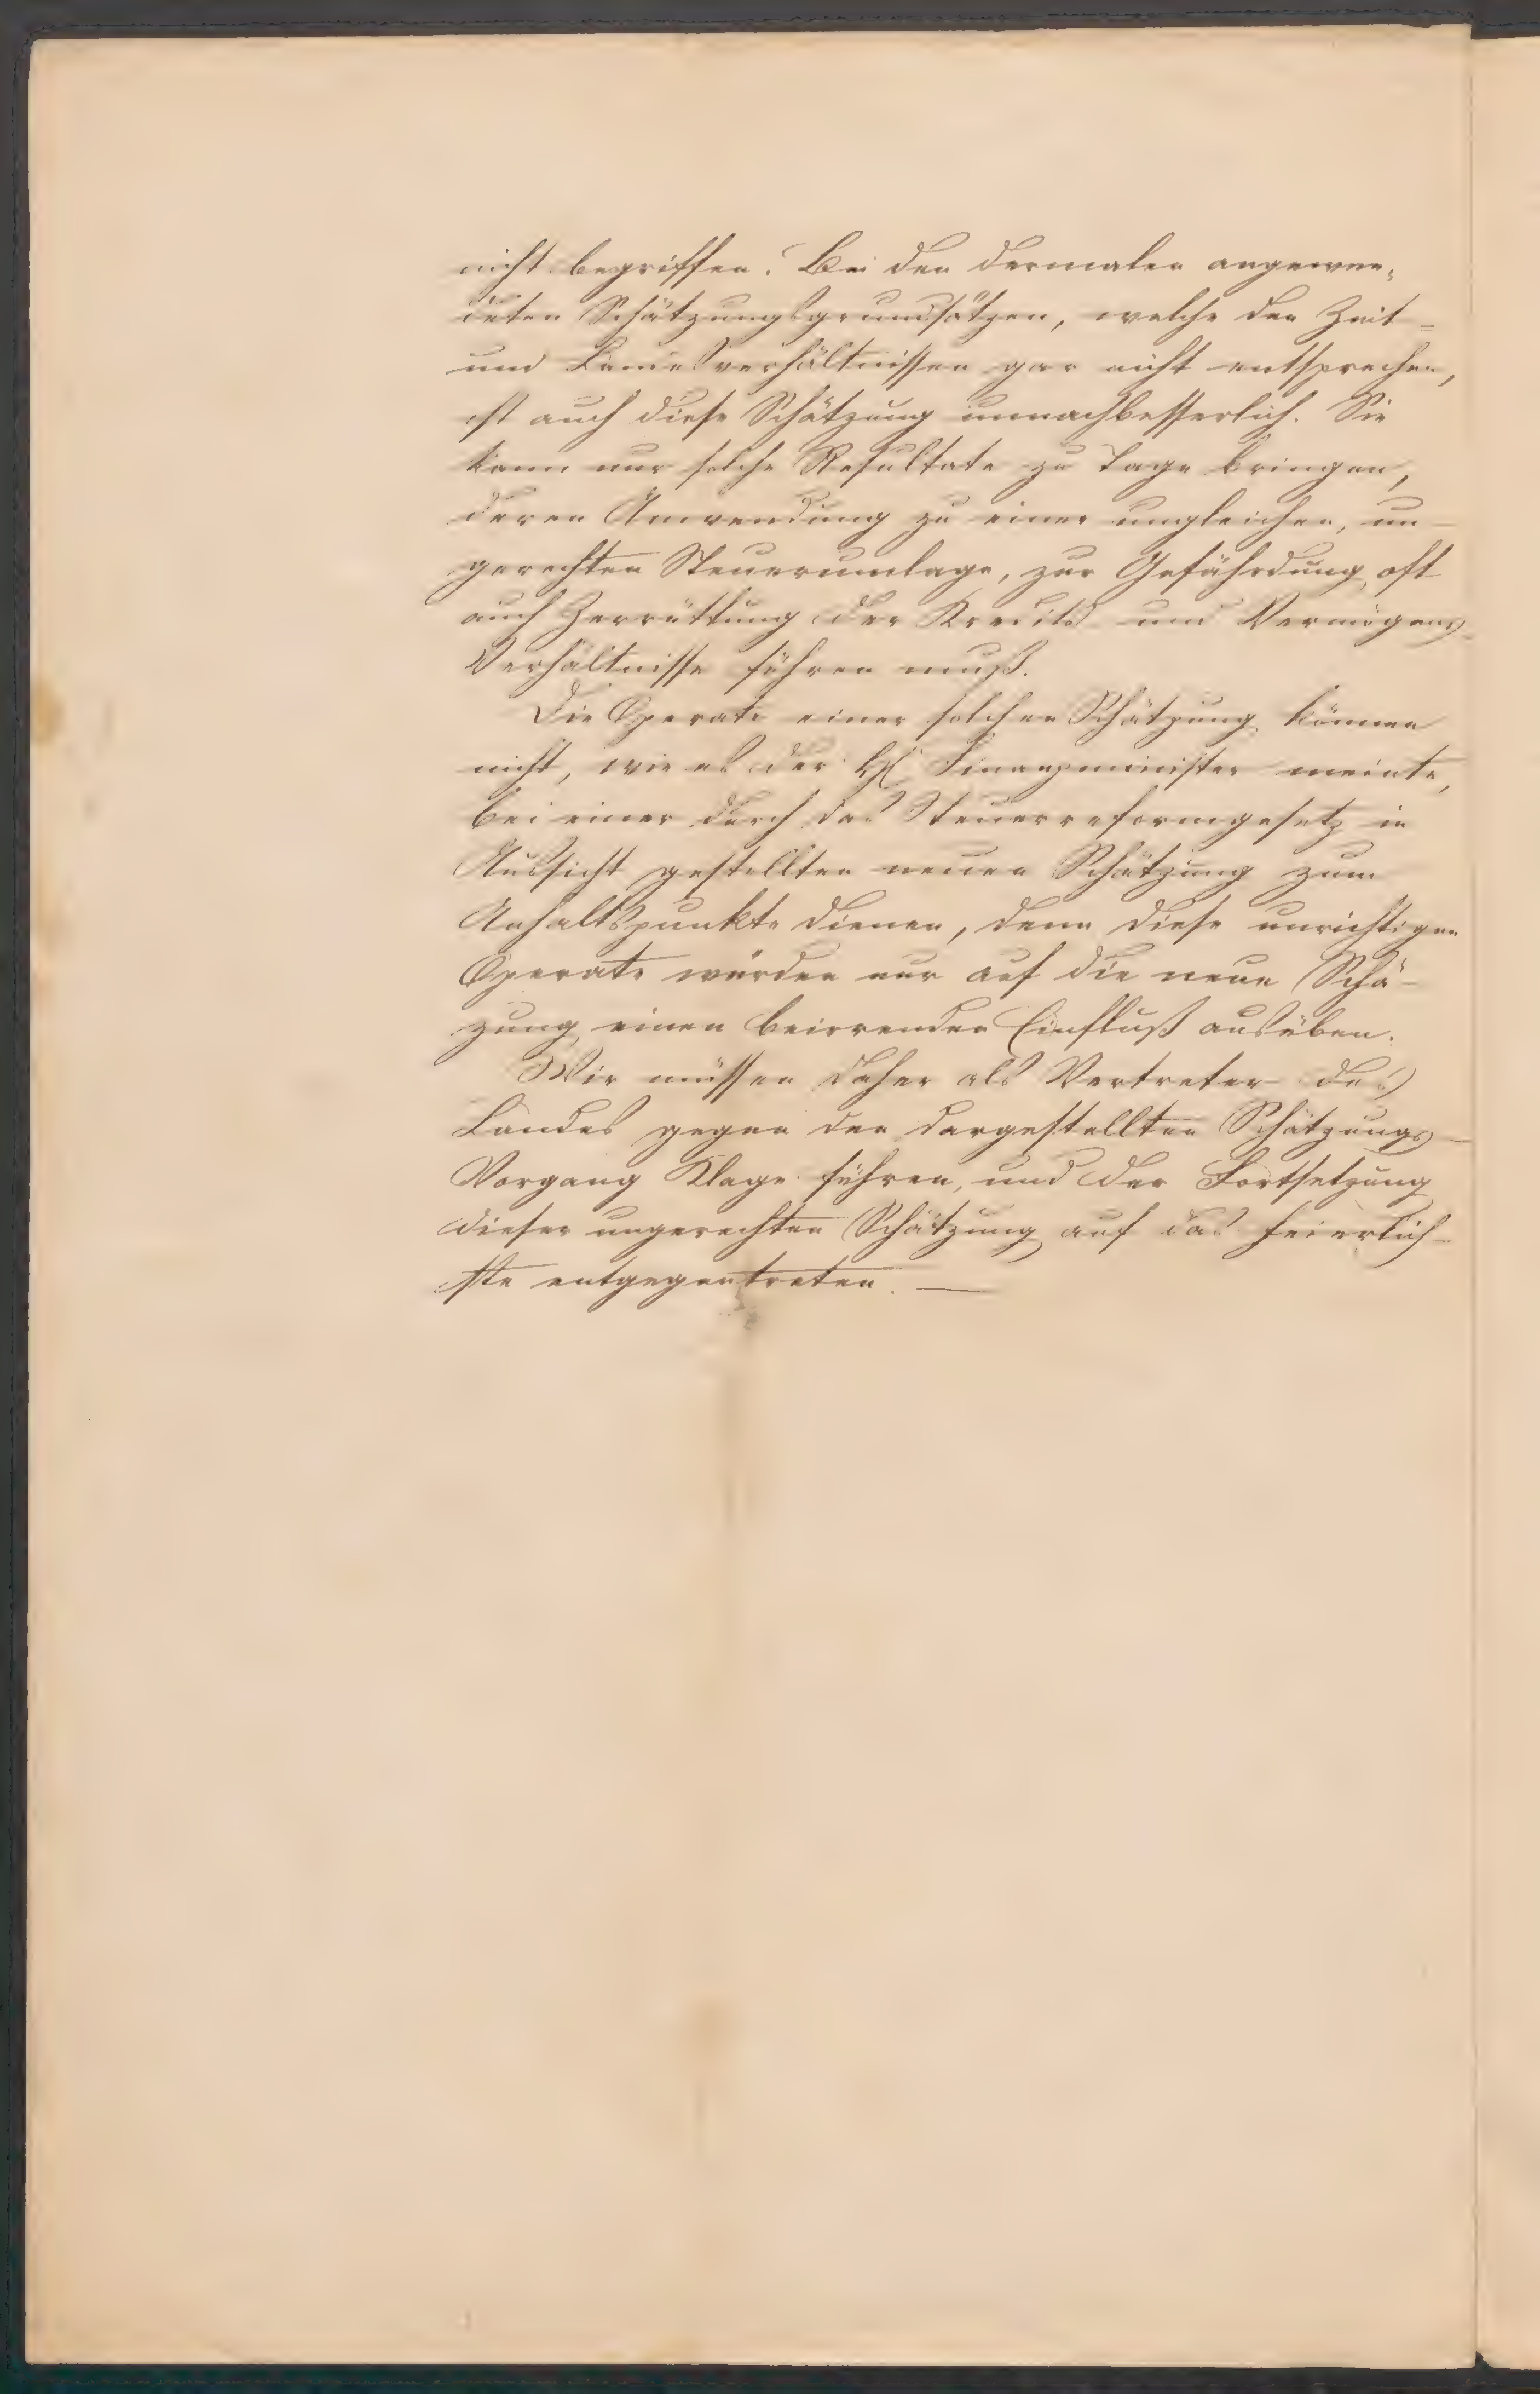 nicht begriffen. Bei den dermalen angewen-
deten Schätzungsgrundsätzen, welche den Zeit-
und Landesverhältnissen gar nicht entsprechen,
ist auch diese Schätzung unnachbesserlich. Sie
kann nur solche Resultate zu Tage bringen,
deren Anwendung zu einer ungleichen, un-
gerechten Steuerumlage, zur Gefährdung oft
auch Zerrüttung der Kredits und Vermögens-
Verhältnisse führen muß.
Die Operate einer solchen Schätzung können
nicht, wie es der H. Finanzminister meinte,
bei einer durch das Steuerreformgesetz in
Aussicht gestellten neuen Schätzung zum
Anhaltspunkte dienen, denn diese unrichtigen
Operate würden nur auf die neue Schä-
zung einen beirrenden Einfluß ausüben.
Wir müssen daher als Vertreter des
Landes gegen den dargestellten Schätzungs-
Vorgang Klage führen, und der Fortsetzung
dieser ungerechten Schätzung auf das feierlich-
ste entgegentreten. —